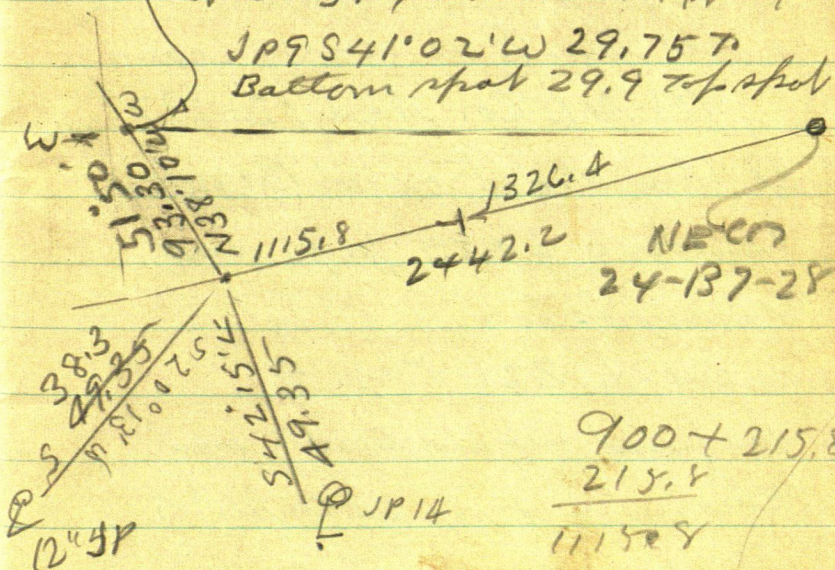 JP9 S41°02'W 29.75 To
Bottom spot 29.9 Top spot
W
51.50
93.30
N38°10'W
1115.8
1326.4
2442.2
NE cor
24-137-28
38.3
49.35
S20°13'W
S
12" JP
S42°15'E
49.35
JP14
900 + 215.8
215.8
1115.8